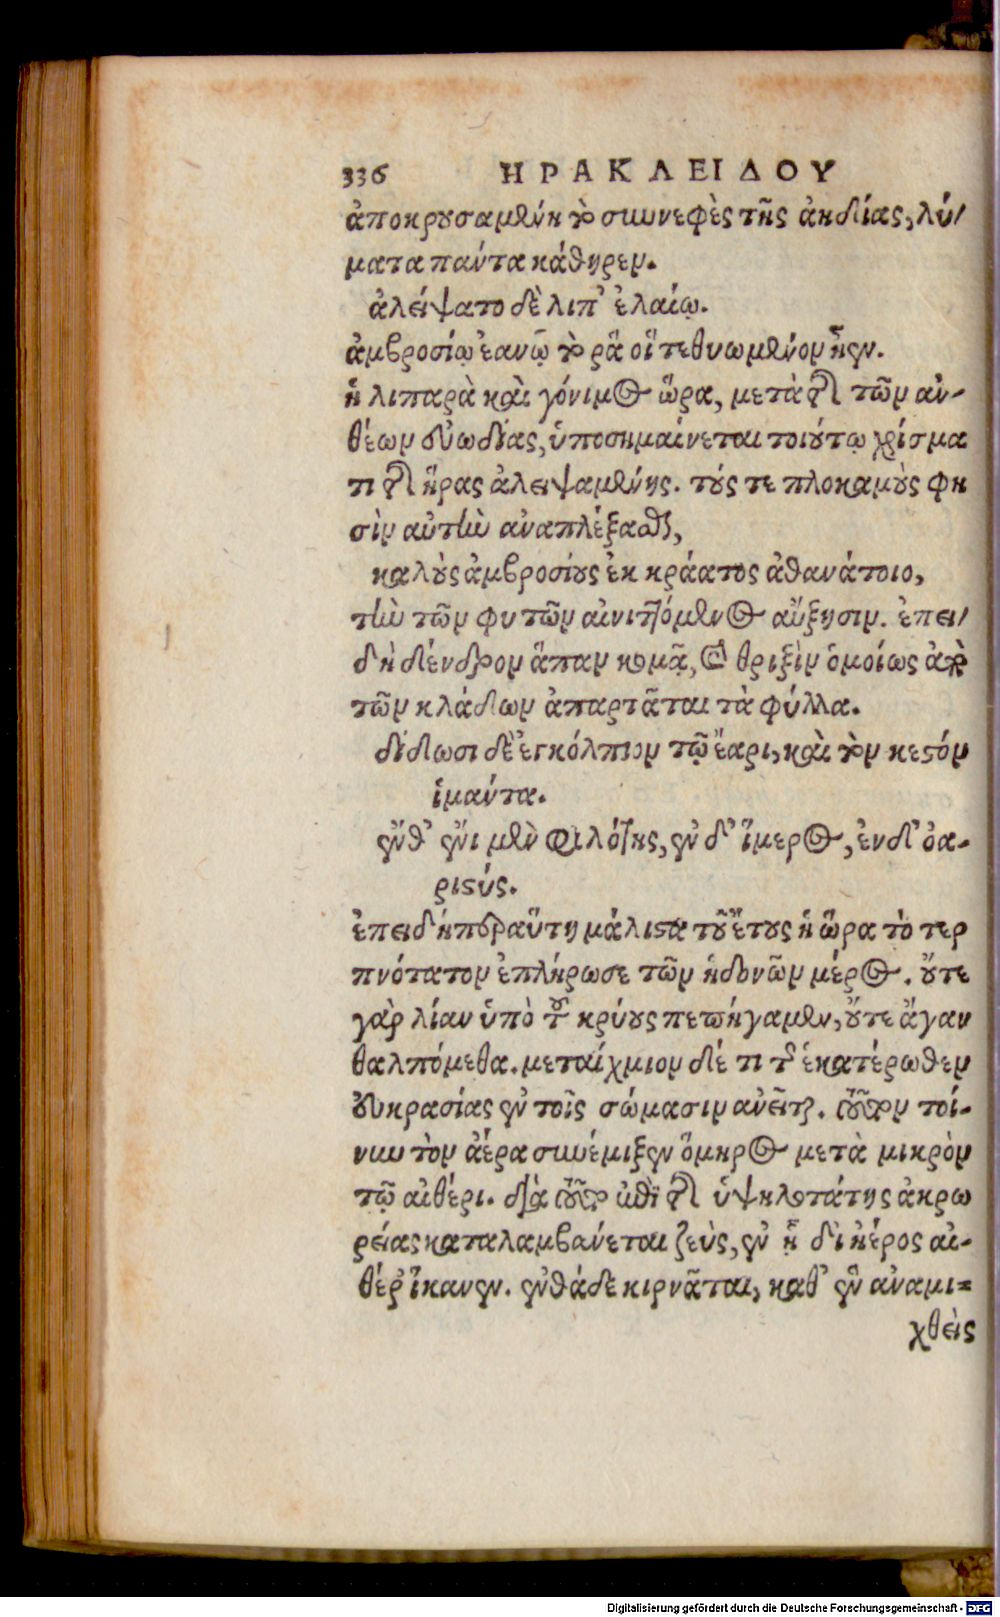 336 ΗΡΑΚΛΕΙΔΟΥ
ἀποκρουσαμένη τὸ συννεφὲς τῆς ἀηδίας, λύ/
ματα πάντα κάθηρεν.
ἀλείψατο δὲ λίπ' ἐλαίῳ.
ἀμβροσίῳ ἑανῷ τό ῥά οἱ τεθυωμένον ἦεν.
ἡ λιπαρὰ καὶ γόνιμος ὥρα, μετὰ τῆς τῶν ἀν-
θέων εὐωδίας, ὑποσημαίνεται τοιούτῳ χρίσμα
τι τῆς ἥρας ἀλειψαμένης. τούς τε πλοκαμούς φη
σὶν αὐτὴν ἀναπλέξασθαι,
καλοὺς ἀμβροσίους ἐκ κράατος ἀθανάτοιο,
τὴν τῶν φυτῶν αἰνιττόμενος αὔξησιν. ἐπει/
δὴ δένδρον ἅπαν κομᾷ, καὶ θριξὶν ὁμοίως ἀπὸ
τῶν κλάδων ἀπαρτᾶται τὰ φύλλα.
δίδωσι δὲ ἐγκόλπιον τῷ ἔαρι, καὶ τὸν κεστὸν
ἱμάντα.
ἔνθ' ἔνι μὲν φιλότης, ἐν δ' ἵμερος, ἐν δ' ὀα-
ριστύς.
ἐπειδήπερ αὕτη μάλιστα τοῦ ἔτους ἡ ὥρα τὸ τερ
πνότατον ἐπλήρωσε τῶν ἡδονῶν μέρος. οὔτε
γὰρ λίαν ὑπὸ τοῦ κρύους πεπήγαμεν, οὔτε ἄγαν
θαλπόμεθα. μεταίχμιον δέ τι τῆς ἑκατέρωθεν
εὐκρασίας ἐν τοῖς σώμασιν ἀνεῖται. τοῦτον τοί-
νυν τὸν ἀέρα συνέμιξεν ὅμηρος μετὰ μικρὸν
τῷ αἰθέρι. διὰ τοῦτο ἐπὶ τῆς ὑψηλοτάτης ἀκρω
ρείας καταλαμβάνεται ζεὺς, ἐν ᾗ δι' ἠέρος αἰ-
θέρ' ἵκανεν. ἐνθάδε κιρνᾶται, καθ' ἓν ἀναμι=
χθεὶς
Digitalisierung gefördert durch die Deutsche Forschungsgemeinschaft - DFG